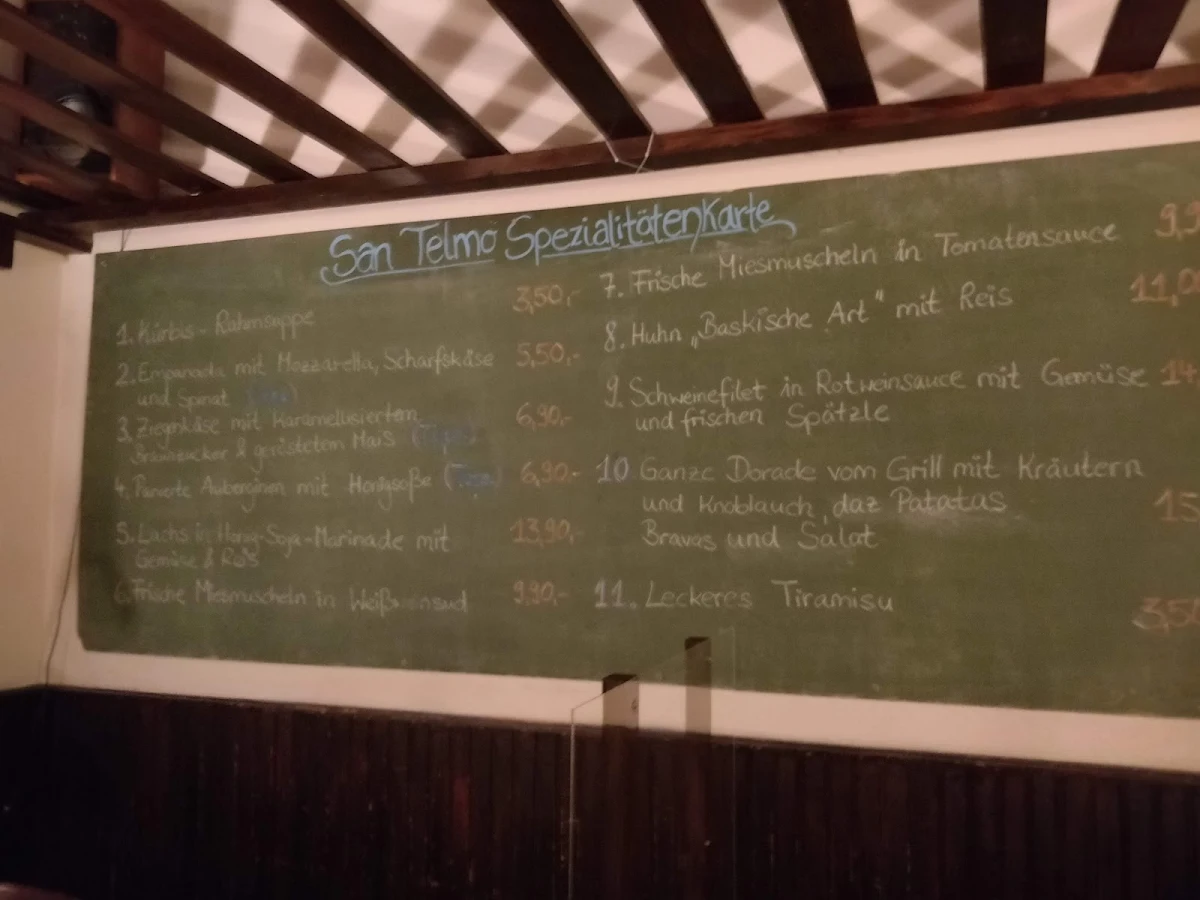 San Telmo Spezialitätenkarte
1. Kürbis - Rahmsuppe 3,50,-
2. Empanada mit Mozzarella, Scharfskäse 5,50,-
und Spinat
3. Ziegenkäse mit Karamellisierten 6,90,-
Braunzucker & geröstetem Mais
4. Panierte Auberginen mit Honigsoße 6,90.-
5. Lachs in Honig-Soja-Marinade mit 13,90,-
Gemüse & Reis
6. Frische Miesmuscheln in 9,90,-
7. Frische Miesmuscheln in Tomatensauce
8. Huhn „Baskische Art" mit Reis
9. Schweinefilet in Rotweinsauce mit Gemüse
und frischen Spätzle
10 Ganze Dorade vom Grill mit Kräutern
und Knoblauch, daz Patatas
Bravas und Salat
11. Leckeres Tiramisu